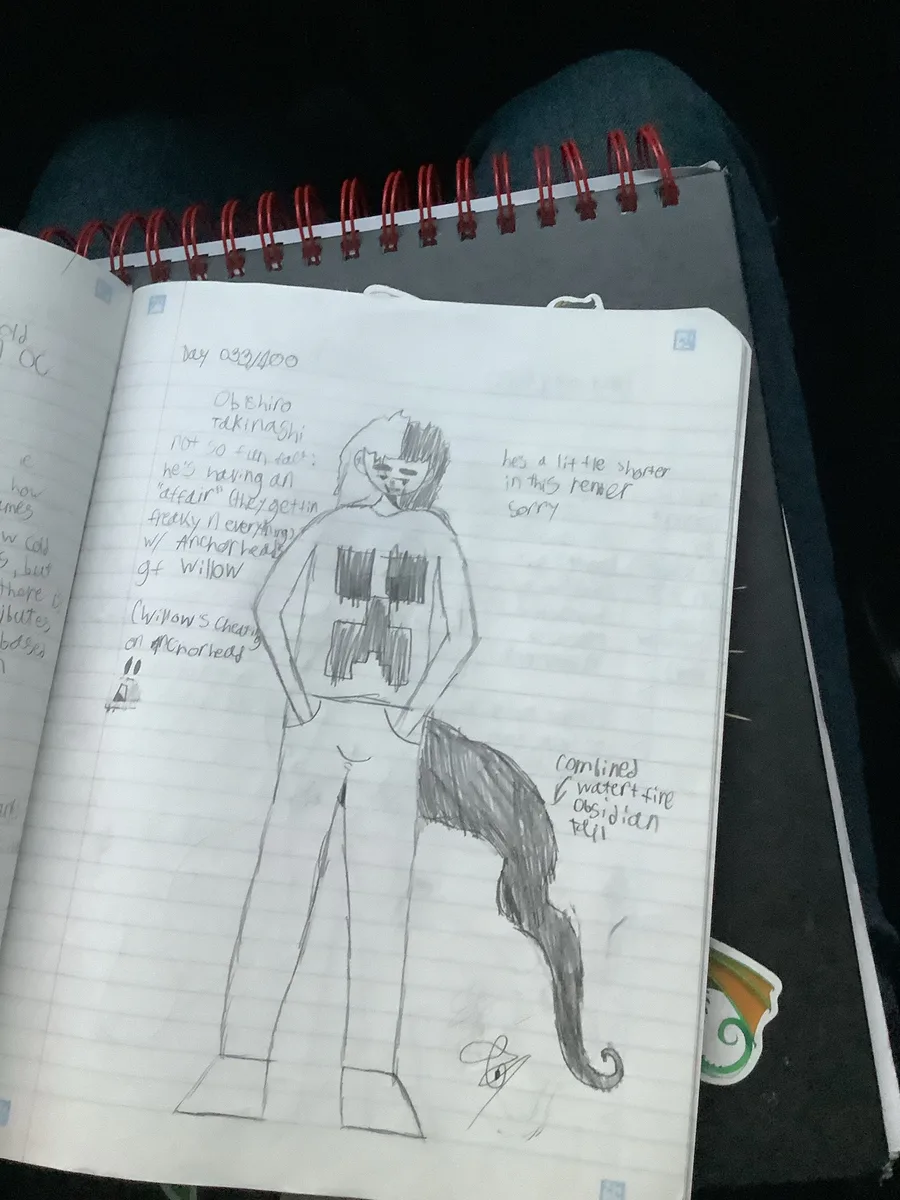 old
OC
ie
how
ames
w cold
s, but
there is
ibutes
bases
n
Day 033/400
Obishiro
Takinashi
not so fun fact:
he's having an
"affair" (they gettin
freaky n everything)
w/ Anchorheads
gf Willow
(Willow's cheating
on Anchorhead)
he's a little shorter
in this render
sorry
combined
water+fire
Obsidian